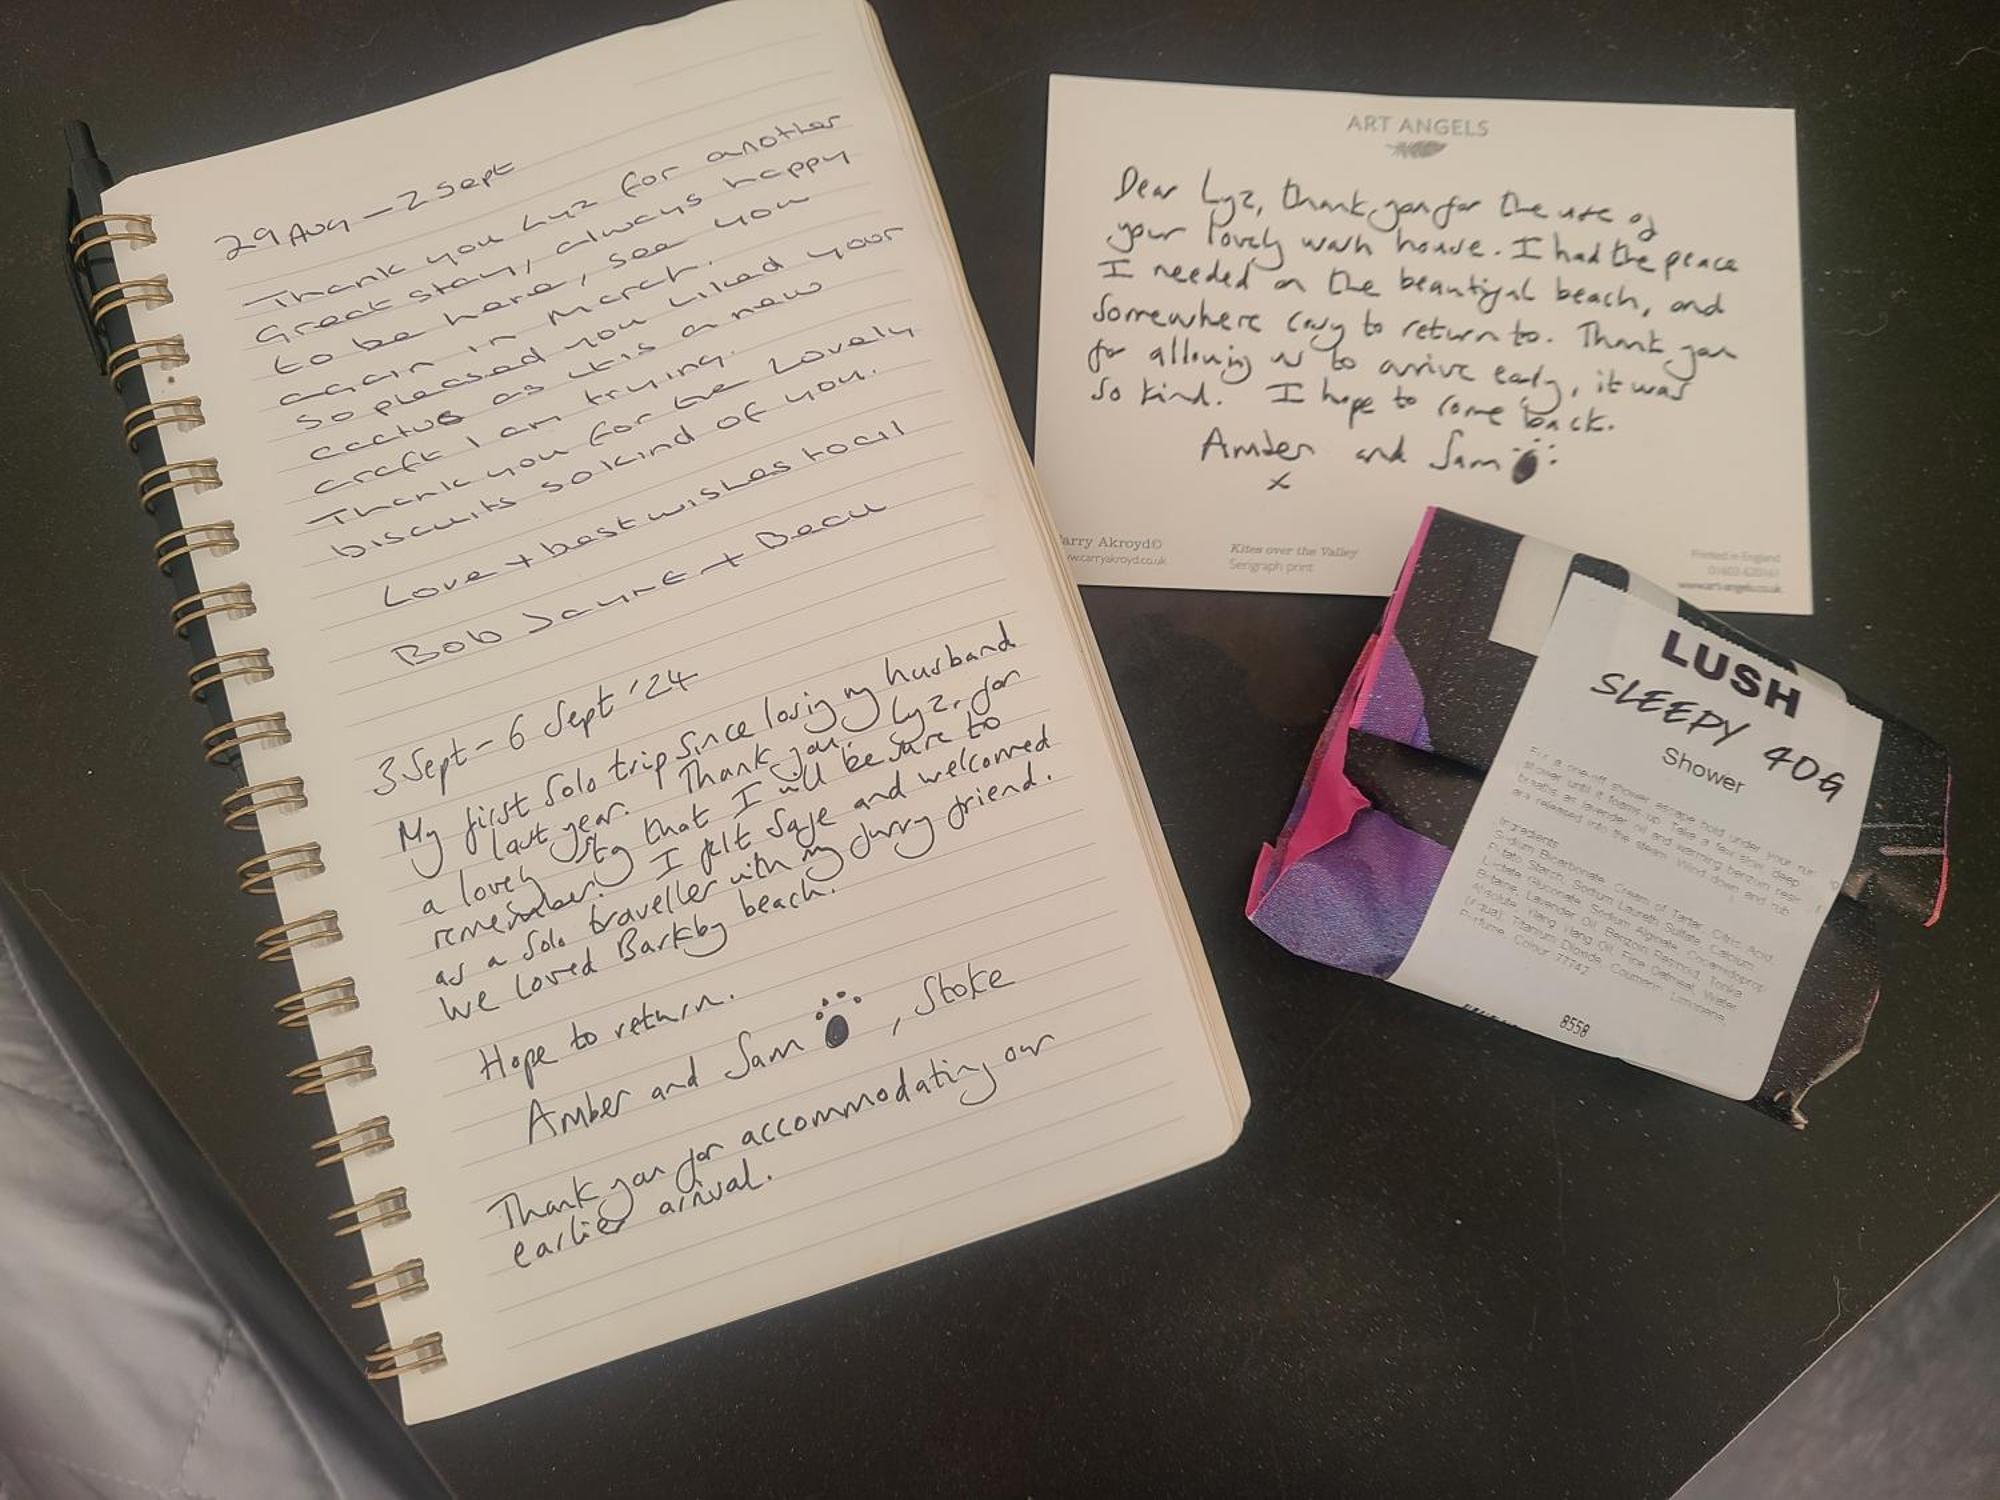 29 Aug - 2 Sept
Thank you Lyz for another
Great stay, always happy
to be here, see you
again in March.
So pleased you liked your
cactus as it is a new
craft I am trying.
Thank you for the Lovely
biscuits so kind of you.
Love + best wishes to all
Bob Jayne + Beau
3 Sept - 6 Sept '24
My first solo trip since losing my husband
last year. Thank you, Lyz, for
a lovely stay that I will be sure to
remember. I felt safe and welcomed
as a solo traveller with my furry friend.
We loved Barkby beach.
Hope to return.
Amber and Sam , Stoke
Thank you for accommodating our
earlier arrival.
ART ANGELS
Dear Lyz, thank you for the use of
your lovely wash house. I had the peace
I needed on the beautiful beach, and
somewhere cosy to return to. Thank you
for allowing us to arrive early, it was
so kind. I hope to come back.
Amber and Sam
x
arry Akroyd©
www.carryakroyd.co.uk
Kites over the Valley
Serigraph print
Printed in England
01603 620161
www.art-angels.co.uk
LUSH
SLEEPY 40G
Shower
For a one-off shower escape hold under your
shower until it foams up. Take a few slow deep
breaths as lavender oil and warming benzoin resin
are released into the steam. Wind down and rub
Ingredients
Sodium Bicarbonate, Cream of Tartar, Citric Acid,
Potato Starch, Sodium Laureth Sulfate, Calcium
Lactate Gluconate, Sodium Alginate,
Lavender Oil, Benzoin Resinoid, Tonka
Absolute, Ylang Ylang Oil, Fine Oatmeal, Water
Titanium Dioxide, Coumarin, Limonene,
Perfume, Colour 77742
8558